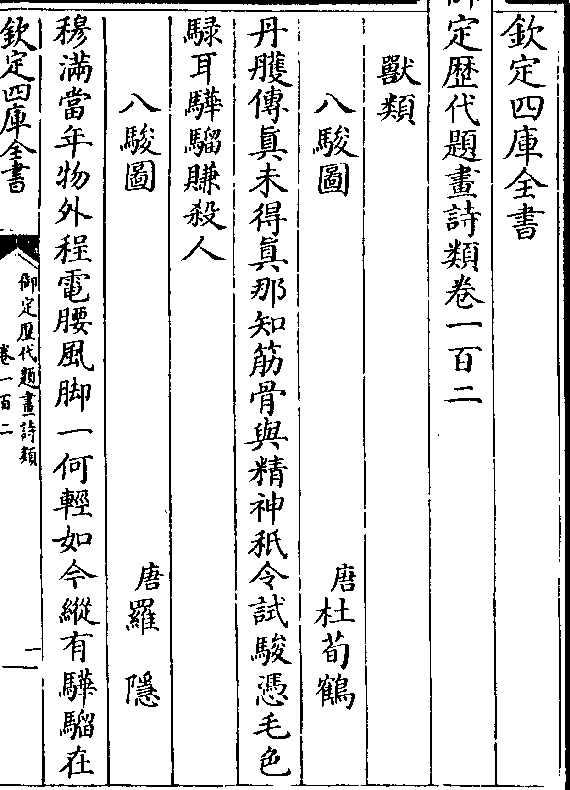 欽定四庫全書
御定歴代題畫詩類卷一百二
獸類
八駿圖　唐杜荀鶴
丹雘傳真未得真那知筋骨與精神秖令試駿憑毛色
騄耳驊騮賺殺人
八駿圖　唐羅隱
穆滿當年物外程電腰風脚一何輕如今縱有驊騮在
欽定四庫全書
御定歴代題畫詩類
卷一百二
一